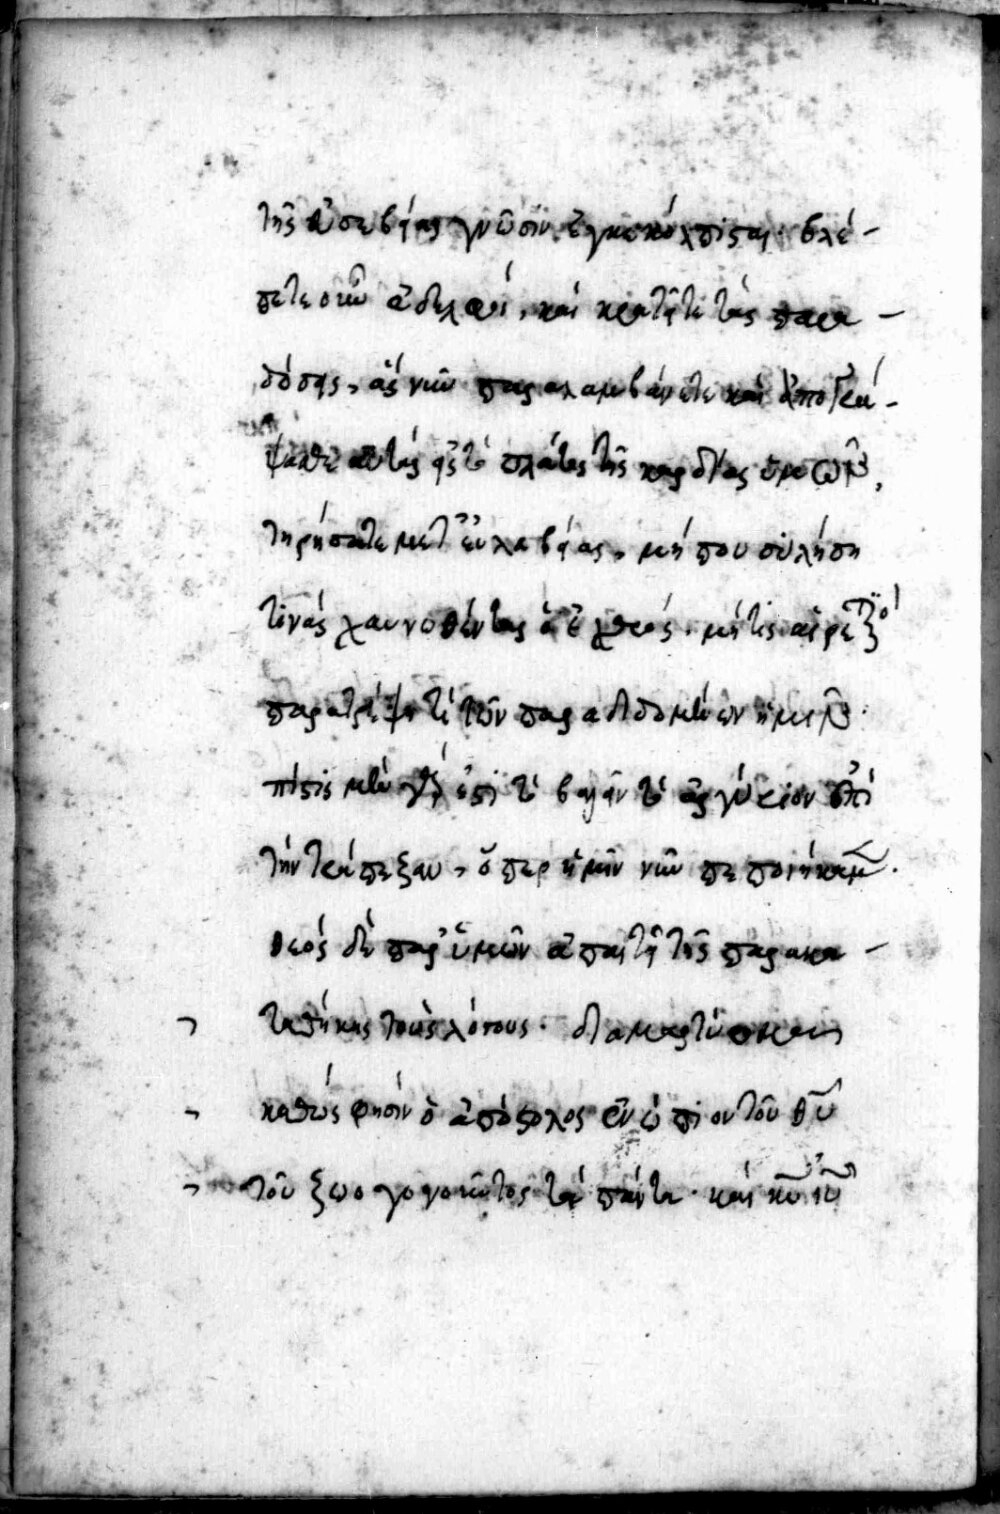 τῆς εὐσεβείας γνῶσιν ἐγκεκόλπισται· βλέ-
πετε οὖν ἀδελφοί, καὶ κρατεῖτε τὰς παρα-
δόσεις, ἃς νῦν παραλαμβάνετε καὶ ἀπογρά-
ψασθε αὐτὰς εἰς τὸ πλάτος τῆς καρδίας ὑμῶν,
τηρήσατε μετ' εὐλαβείας, μή που συλήσῃ
τινὰς χαυνωθέντας ὁ ἐχθρός. μή τις αἱρετικὸς
παρατρέψῃ τι τῶν παραδιδομένων ἡμῖν·
πίστις μὲν γάρ ἐστι τὸ βαλεῖν τὸ ἀργύριον ἐπὶ
τὴν τράπεζαν, ὅπερ ἡμεῖν νῦν πεποιήκαμεν.
θεὸς δὲ παρ' ὑμῶν ἀπαιτεῖ τῆς παρακα-
ταθήκης τοὺς λόγους· διαμαρτύρομαι
καθώς φησιν ὁ ἀπόστολος ἐνώπιον τοῦ θυ
τοῦ ζωογονοῦντος τὰ πάντα· καὶ κυ ιυ